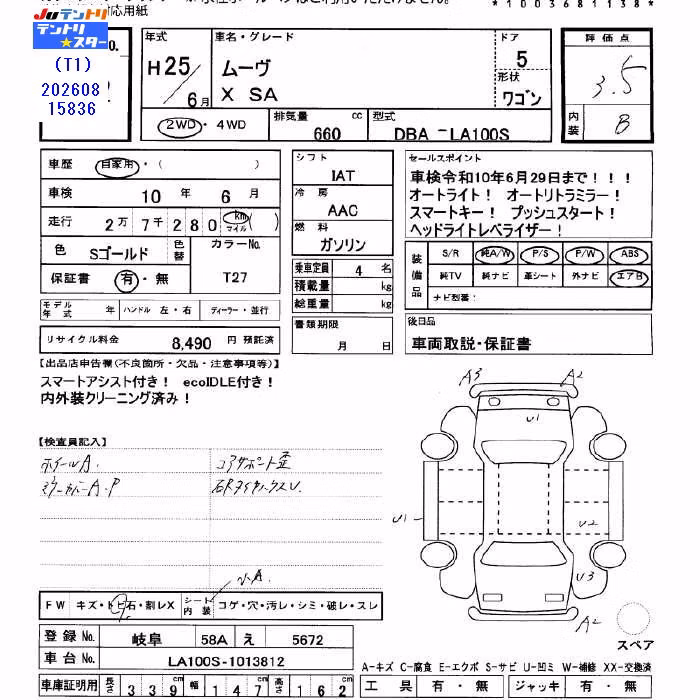 対応用紙
*1003681138*
JUテントリ
テントリ★スター
(T1)
202608
15836
年式 車名・グレード ドア
H25/6月 ムーヴ 5
X SA 形状
ワゴン
2WD・4WD 排気量 660 cc 型式 DBA-LA100S
評価点
3.5
内装 B
車歴 自家用・( )
車検 10年 6月
走行 2万7千280 km マイル ( )
色 Sゴールド 色替 カラーNo. T27
保証書 有・無
モデル年式 年 ハンドル 左・右 ディーラー・並行
リサイクル料金 8,490円 預託済
シフト
IAT
冷房
AAC
燃料
ガソリン
乗車定員 4 名
積載量 kg
総重量 kg
書類期限
月 日
セールスポイント
車検令和10年6月29日まで!!!
オートライト! オートリトラミラー!
スマートキー! プッシュスタート!
ヘッドライトレベライザー!
装備品 S/R 純A/W P/S P/W ABS
純TV 純ナビ 革シート 外ナビ エアB
ナビ型番:
後日品
車両取説・保証書
【出品店申告欄(不良箇所・欠品・注意事項等)】
スマートアシスト付き! ecoIDLE付き!
内外装クリーニング済み!
【検査員記入】
ホイールA. コアサポート歪
ミラーカバーA・P
A3 A2
U1
U1 U2
U3
A2
スペア
シートA.
FW キズ・トビ石・割レX シート内装 コゲ・穴・汚レ・シミ・破レ・スレ
登録No. 岐阜 58A え 5672
車台No. LA100S-1013812
車庫証明用 長さ 339cm 幅 147cm 高さ 162cm
A-キズ C-腐食 E-エクボ S-サビ U-凹ミ W-補修 XX-交換済
工具 有・無 ジャッキ 有・無